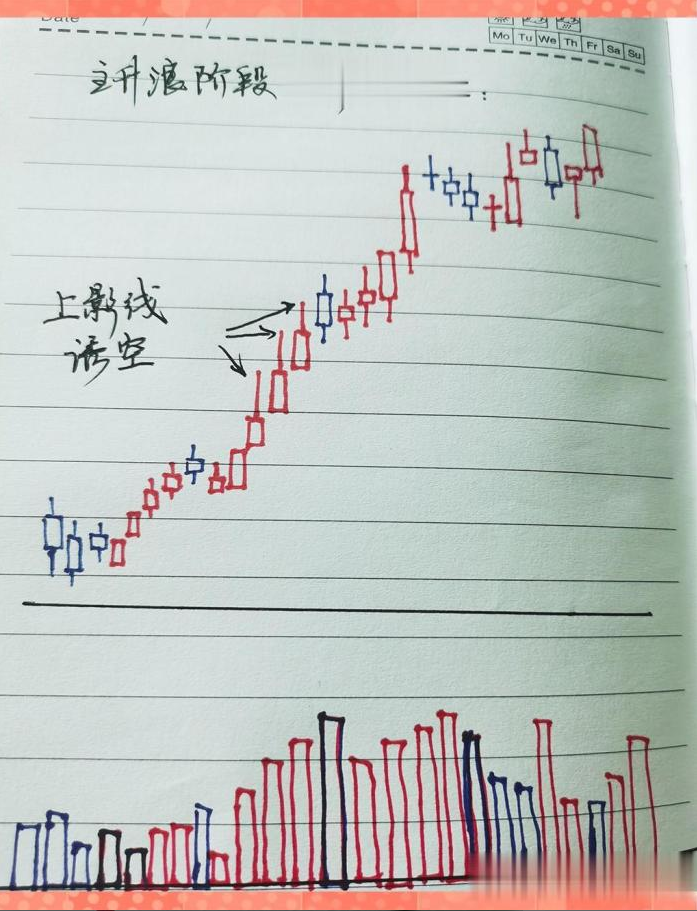 Date / /
Mo Tu We Th Fr Sa Su
主升浪阶段
:
上影线
诱空